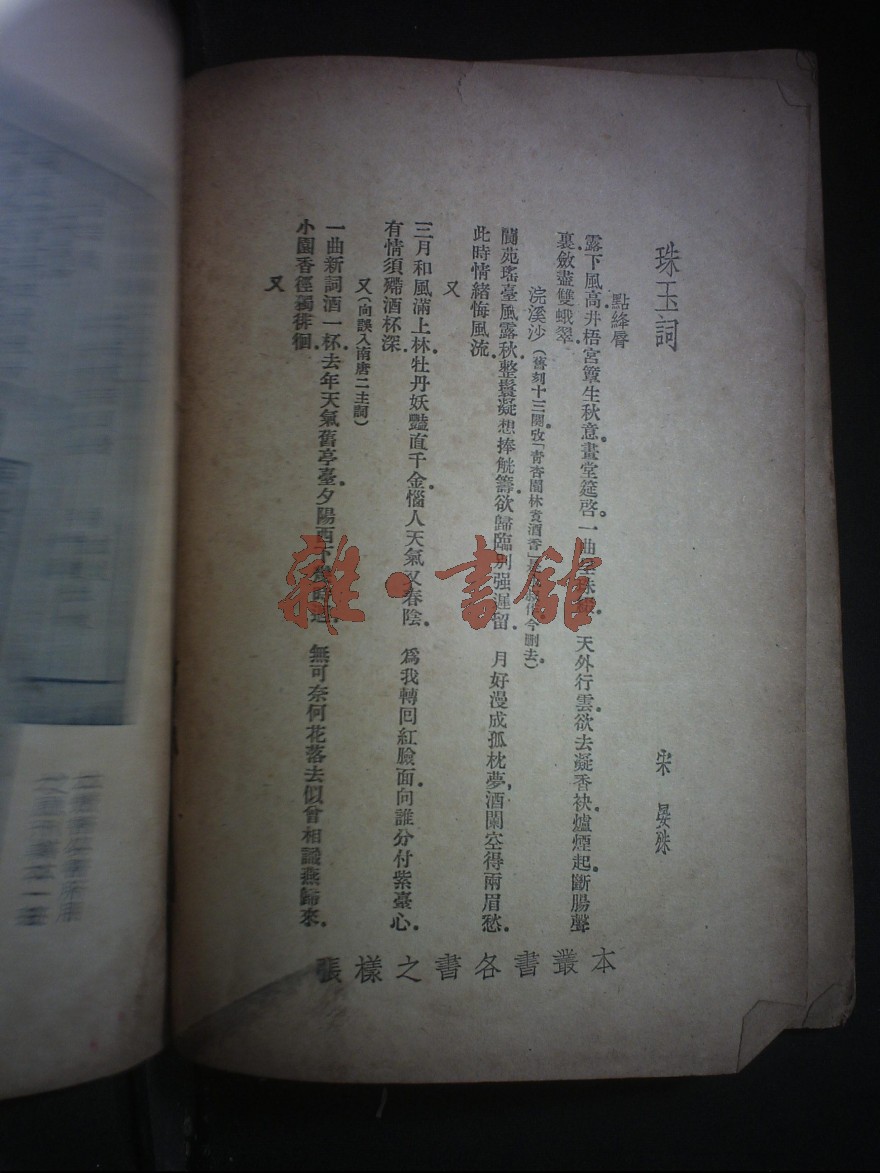 珠玉詞
宋 晏殊
點絳脣
露下風高井梧宮簟生秋意。畫堂筵啓。一曲 天外行雲欲去凝香袂。爐煙起。斷腸聲
裏。斂盡雙蛾翠。
浣溪沙(舊刻十三闋攷「青杏園林煑酒香」是 今刪去)
閬苑瑤臺風露秋。整鬟凝想捧觥籌。欲歸臨別强遲留。 月好漫成孤枕夢,酒闌空得兩眉愁。
此時情緒悔風流。
又
三月和風滿上林。牡丹妖豔直千金。惱人天氣又春陰。 爲我轉回紅臉面。向誰分付紫臺心。
有情須殢酒杯深。
又(向誤入南唐二主詞)
一曲新詞酒一杯。去年天氣舊亭臺。夕陽西下 無可奈何花落去。似曾相識燕歸來。
小園香徑獨徘徊。
又
本叢書各書之樣張
雜·書館